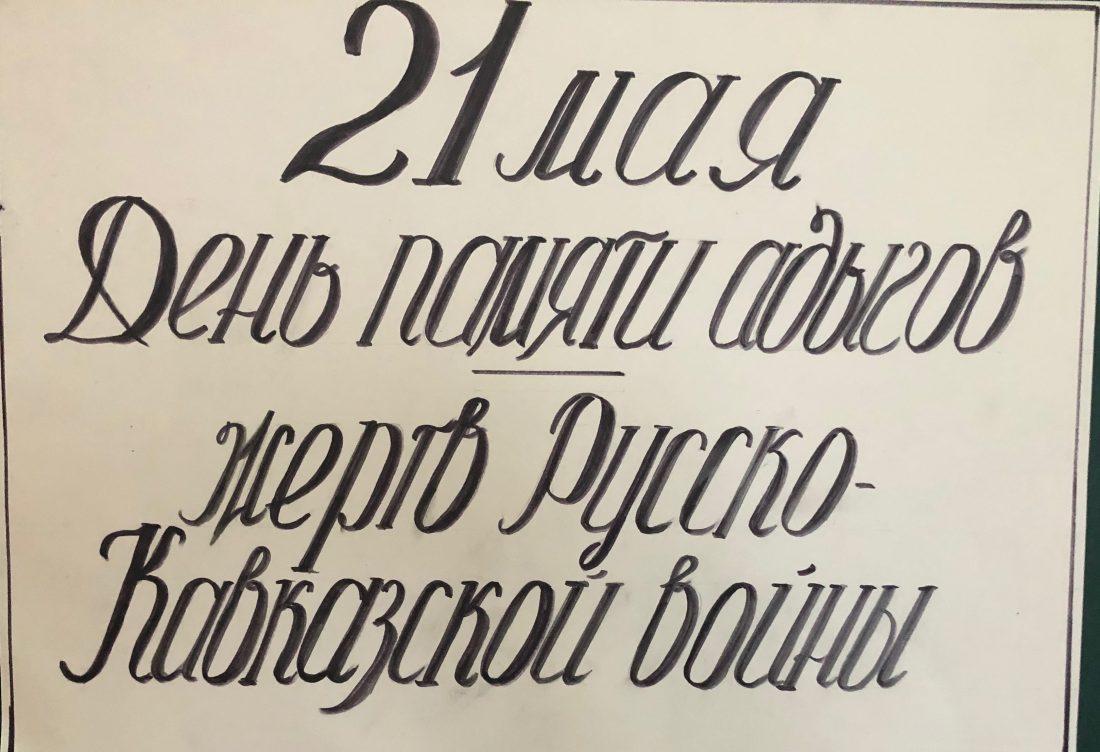 21 мая
День памяти адыгов
жертв Русско-
Кавказской войны